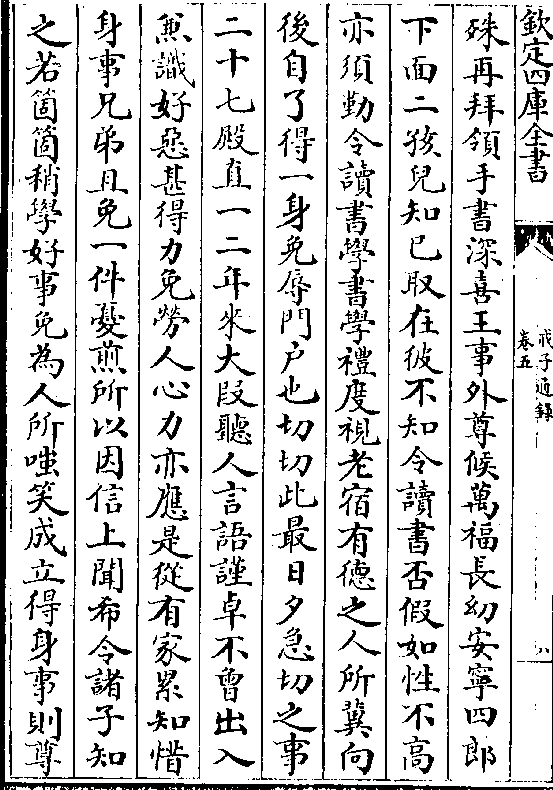 欽定四庫全書
戒子通錄
卷五
殊再拜領手書深喜王事外尊候萬福長幼安寧四郎
下面二孩兒知已取在彼不知令讀書否假如性不高
亦須勤令讀書學書學禮度視老宿有德之人所冀向
後自了得一身免辱門户也切切此最日夕急切之事
二十七殿直一二年來大段聽人言語謹卓不曾出入
兼識好惡甚得力免勞人心力亦應是從有家累知惜
身事兄弟且免一件憂煎所以因信上聞希令諸子知
之若箇箇稍學好事免為人所嗤笑成立得身事則尊